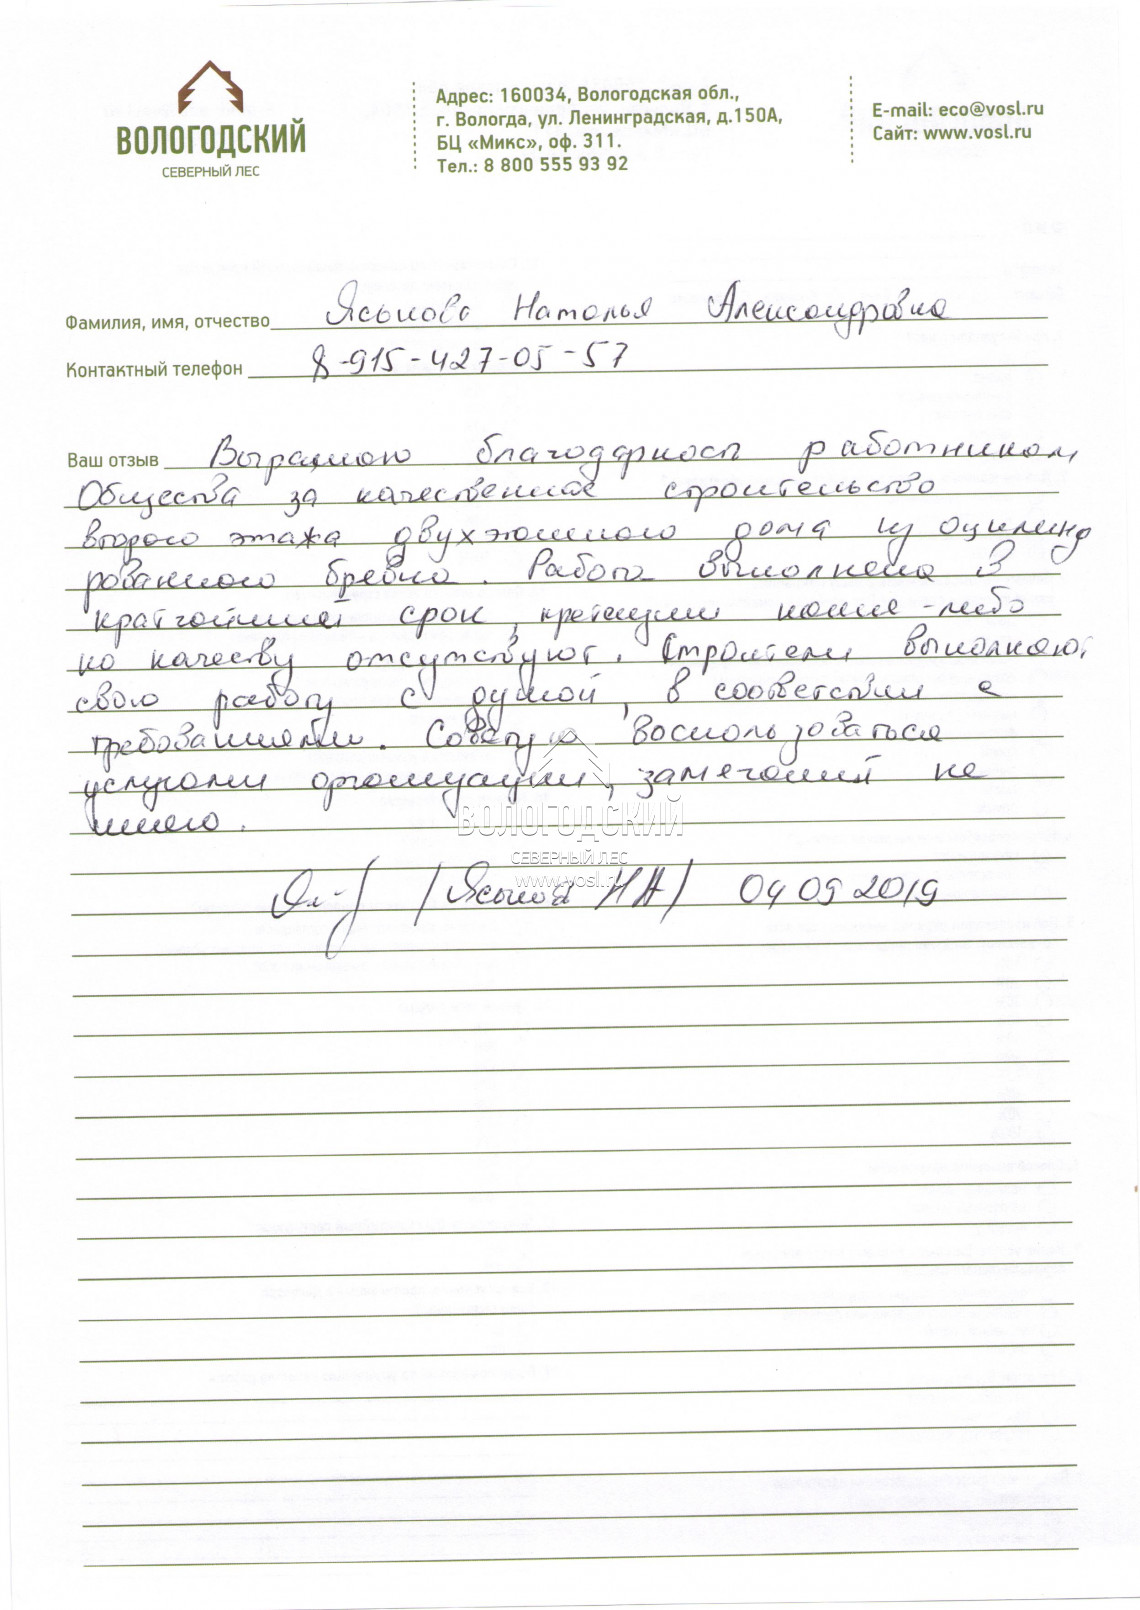 ВОЛОГОДСКИЙ
СЕВЕРНЫЙ ЛЕС
Адрес: 160034, Вологодская обл.,
г. Вологда, ул. Ленинградская, д.150А,
БЦ «Микс», оф. 311.
Тел.: 8 800 555 93 92
E-mail: eco@vosl.ru
Сайт: www.vosl.ru
Фамилия, имя, отчество Наталья Александровна
Контактный телефон 8-915-427-05-57
Ваш отзыв Выражаю благодарность работникам
Общества за качественное строительство
второго этажа двухэтажного дома из оцилинд
рованного бревна. Работа выполнена в
кратчайший срок, претензии какие-либо
по качеству отсутствуют. Строители выполняют
свою работу с душой, в соответствии с
требованиями. Советую воспользоваться
услугами организации, замечаний не
имею.
ВОЛОГОДСКИЙ
СЕВЕРНЫЙ ЛЕС
www.vosl.ru
НА) 04 09 2019